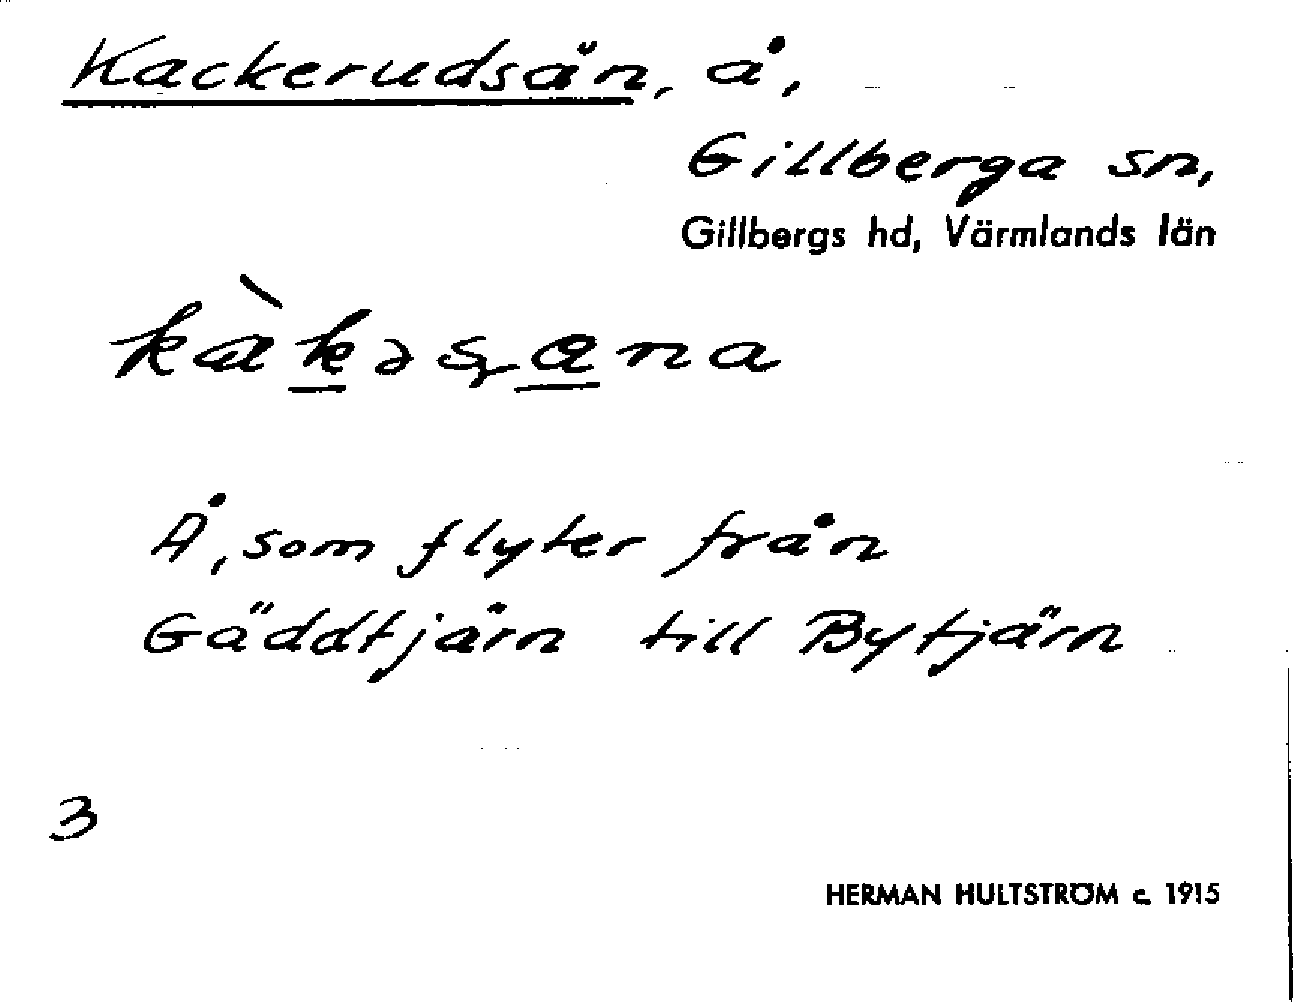 Kackerudsån, å,
Gillberga sn,
Gillbergs hd, Värmlands län
kàkəsana
Å, som flyter från
Gäddtjärn till Bytjärn
3
HERMAN HULTSTRÖM c. 1915